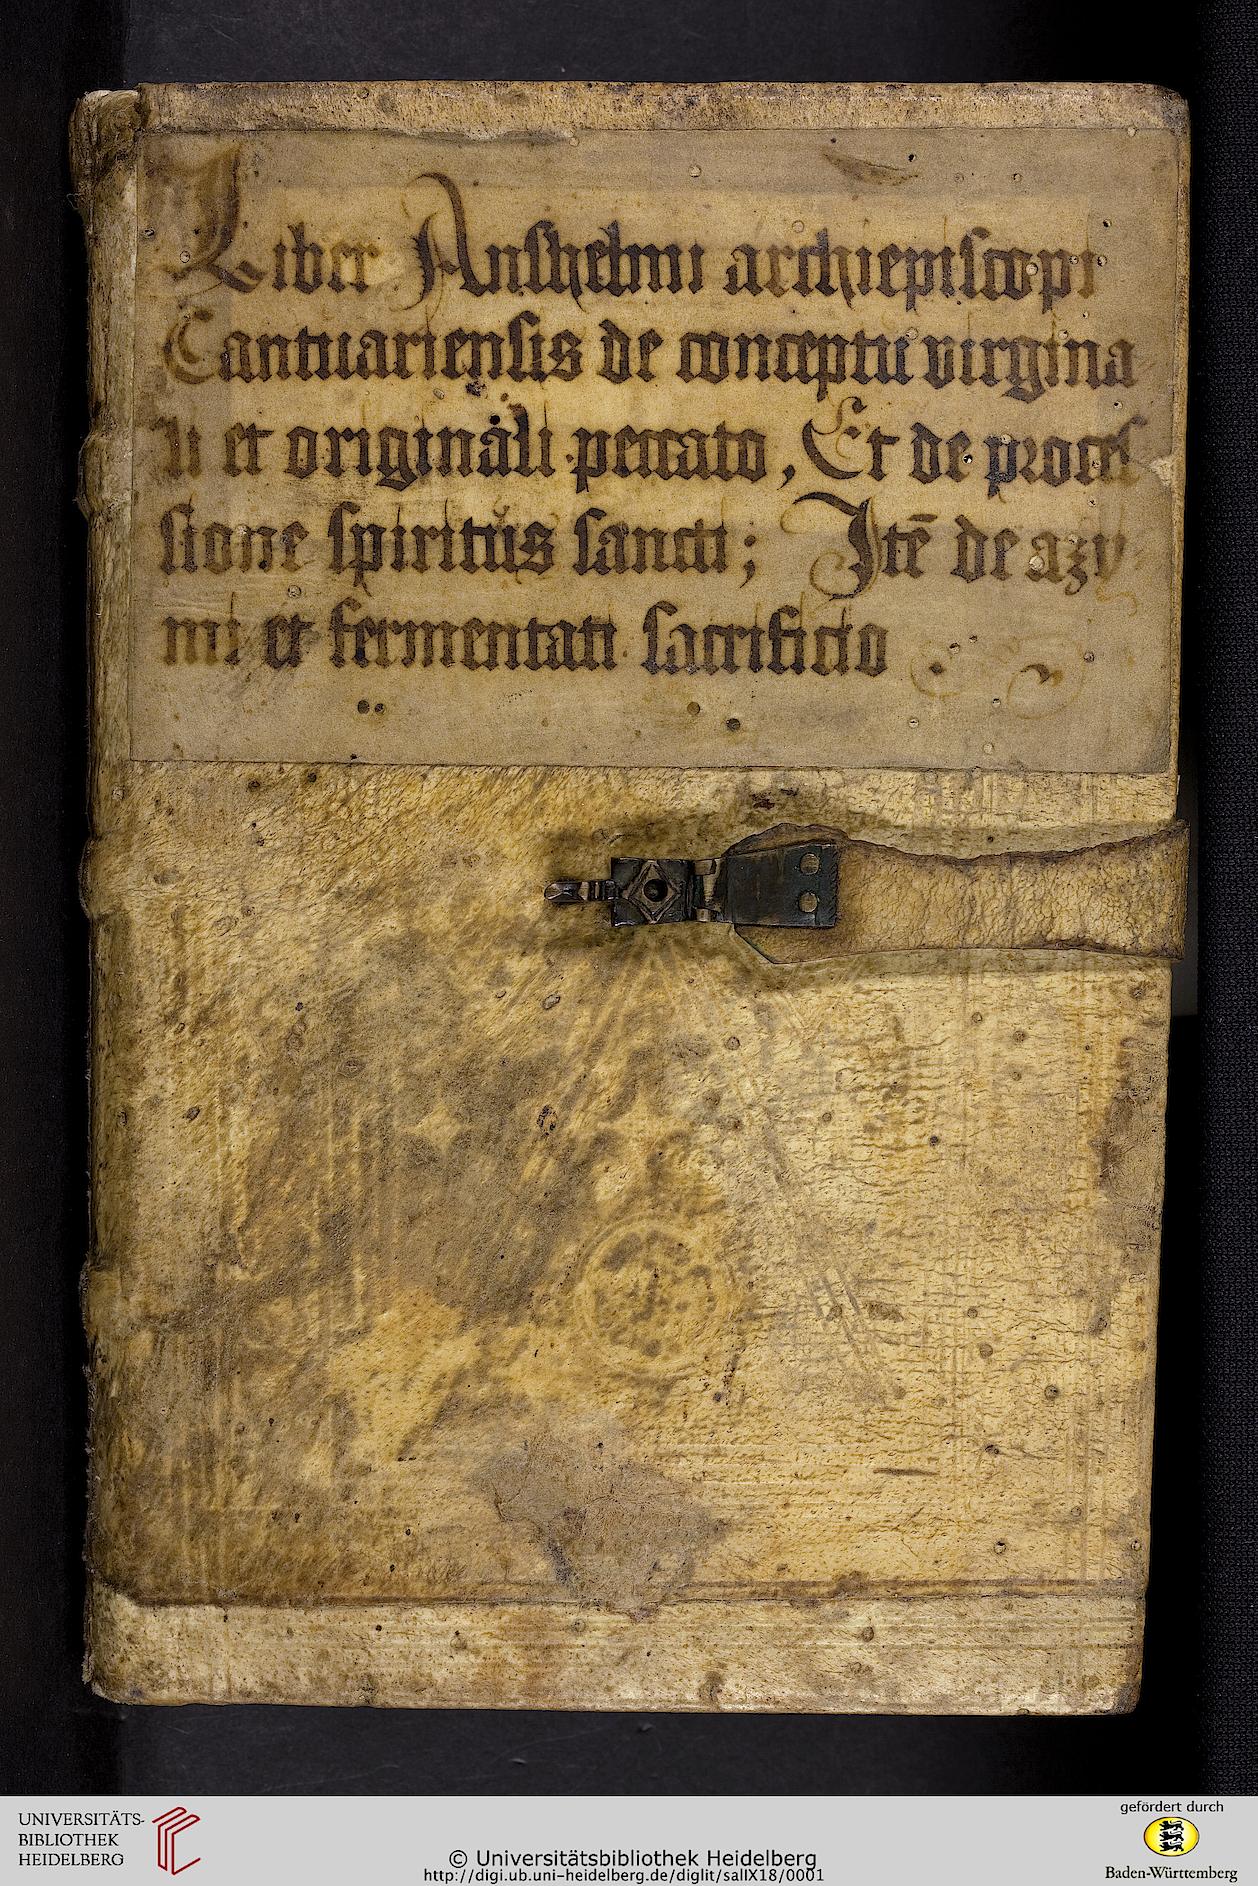 Liber Anshelmi archiepiscopi
Cantuariensis de conceptu virgina
li et originali peccato, Et de proces
sione spiritus sancti; Itē de azy
mi et fermentati sacrificio
UNIVERSITÄTS-
BIBLIOTHEK
HEIDELBERG
© Universitätsbibliothek Heidelberg
http://digi.ub.uni-heidelberg.de/diglit/salIX18/0001
gefördert durch
Baden-Württemberg